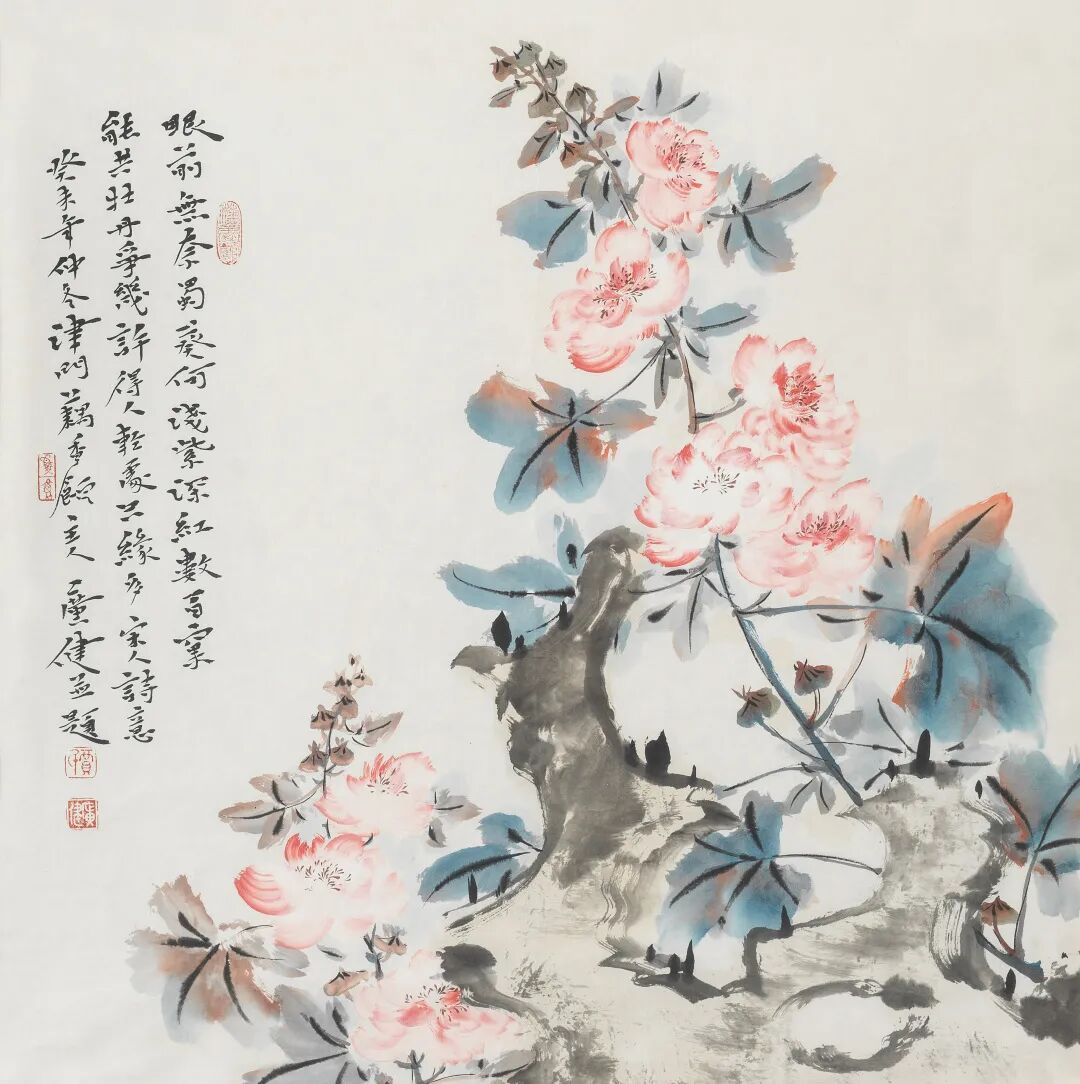 眼前無奈蜀葵何淺紫深紅數百窠
能共牡丹爭幾許得人輕處只緣多宋人詩意
癸未年仲冬津門藕香館主人廣健並題